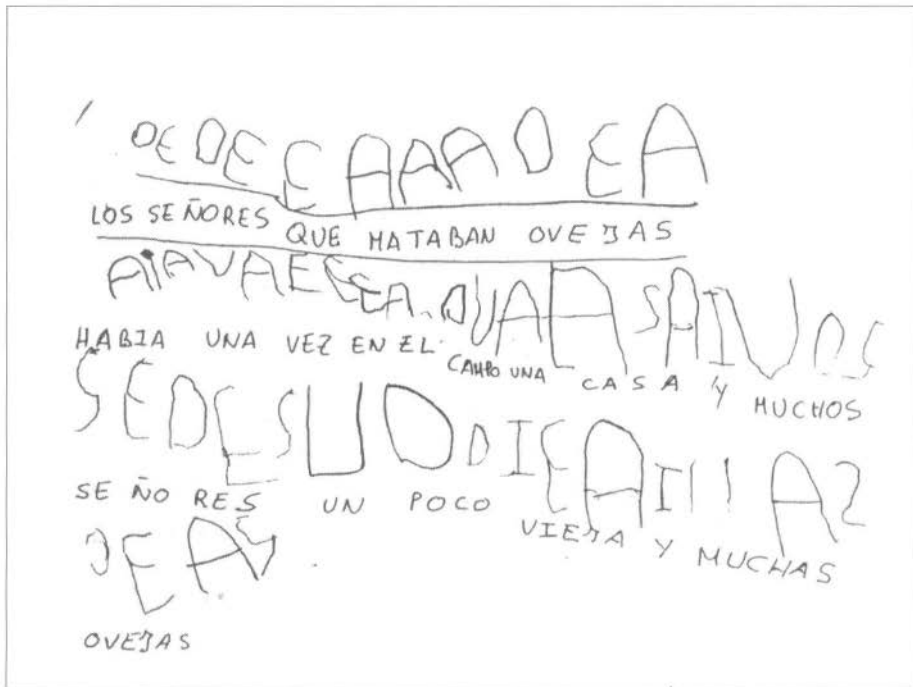 DEDEEAAADEA
LOS SEÑORES QUE MATABAN OVEJAS
AIAVAEEEA.OUAASAIVOS
HABIA UNA VEZ EN EL CAMPO UNA CASA Y MUCHOS
SEDESUODIEAIIIAS
SEÑORES UN POCO VIEJA Y MUCHAS
OEAS
OVEJAS